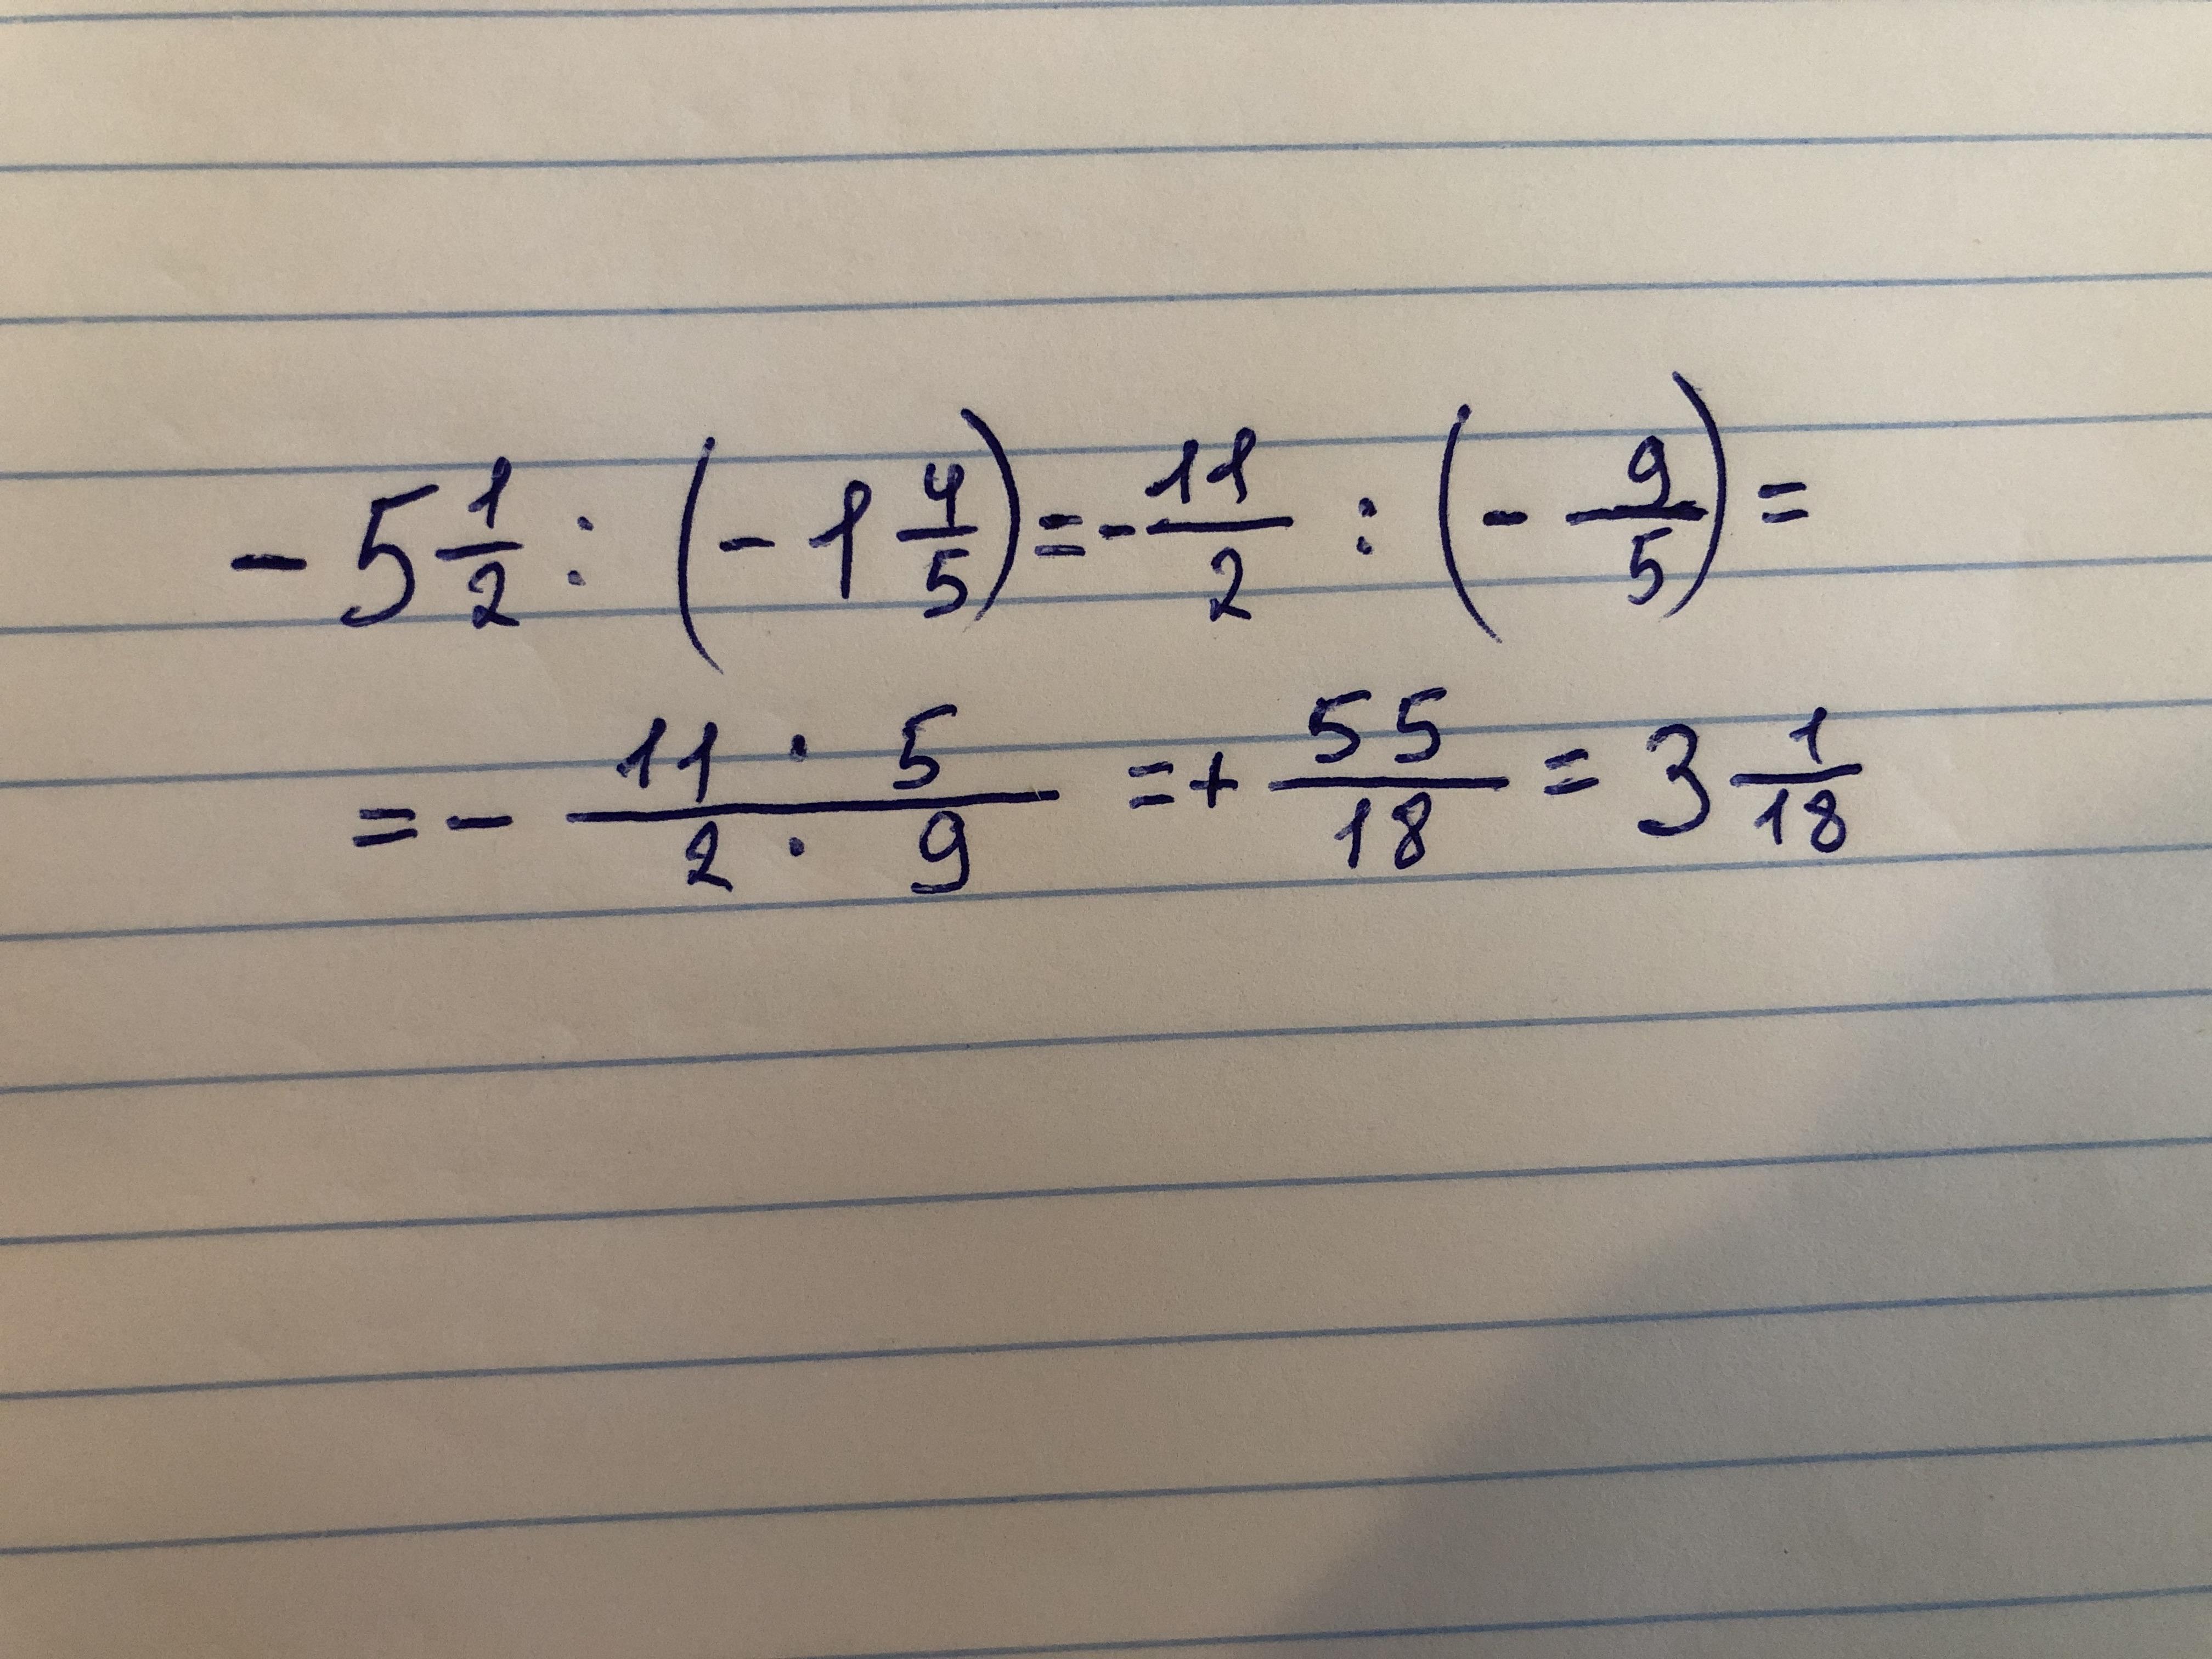 - 5 1/2 : (- 1 4/5) = - 11/2 : (- 9/5) =
= - 11 · 5 / 2 · 9 = + 55/18 = 3 1/18